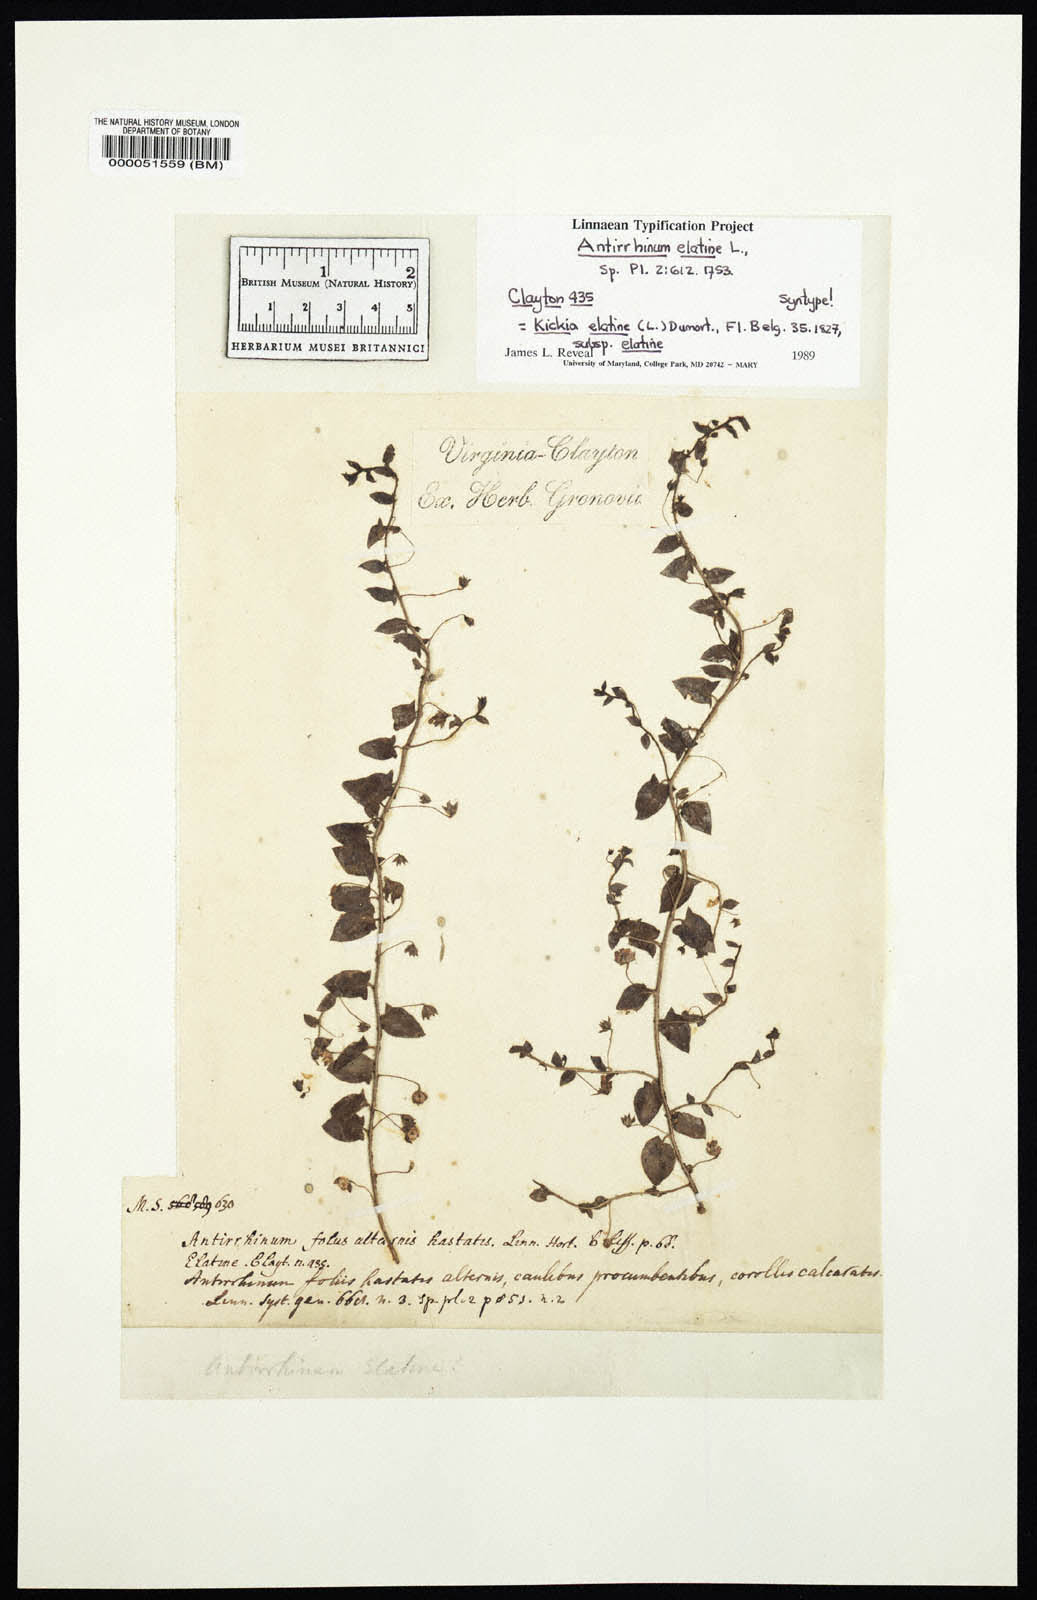 THE NATURAL HISTORY MUSEUM, LONDON
DEPARTMENT OF BOTANY
000051559 (BM)
1 2
BRITISH MUSEUM (NATURAL HISTORY)
1 2 3 4 5
HERBARIUM MUSEI BRITANNICI
Linnaean Typification Project
Antirrhinum elatine L.,
Sp. Pl. 2:612. 1753.
Clayton 435 Syntype!
= Kickia elatine (L.) Dumort., Fl. Belg. 35. 1827,
subsp. elatine
James L. Reveal 1989
University of Maryland, College Park, MD 20742 – MARY
Virginia-Clayton
Ex. Herb. Gronovii
M. S. 630
Antirrhinum foliis alternis hastatis. Linn. Hort. Cliff. p.
Elatine. Clayt. n. 435.
Antirrhinum foliis hastatis alternis, caulibus procumbentibus, corollis calcaratis.
Linn. Syst. gen. n. 3. Sp. pl. 2 p 851. n. 2
Antirrhinum Elatine?